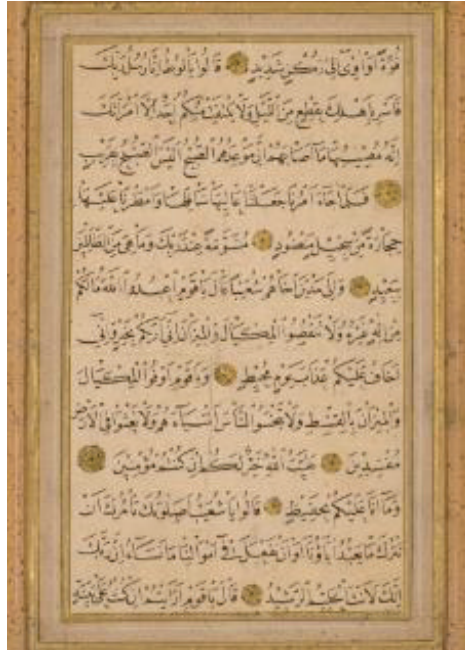 قُوَّةً اَوْ اٰوٖي اِلٰى رُكْنٍ شَدٖيدٍ قَالُوا يَا لُوطُ اِنَّا رُسُلُ رَبِّكَ
فَاَسْرِ بِاَهْلِكَ بِقِطْعٍ مِنَ الَّيْلِ وَلَا يَلْتَفِتْ مِنْكُمْ اَحَدٌ اِلَّا امْرَاَتَكَ
اِنَّهُ مُصٖيبُهَا مَا اَصَابَهُمْ اِنَّ مَوْعِدَهُمُ الصُّبْحُ اَلَيْسَ الصُّبْحُ بِقَرٖيبٍ
فَلَمَّا جَاءَ اَمْرُنَا جَعَلْنَا عَالِيَهَا سَافِلَهَا وَاَمْطَرْنَا عَلَيْهَا
حِجَارَةً مِنْ سِجّٖيلٍ مَنْضُودٍ مُسَوَّمَةً عِنْدَ رَبِّكَ وَمَا هِيَ مِنَ الظَّالِمٖينَ
بِبَعٖيدٍ وَاِلٰى مَدْيَنَ اَخَاهُمْ شُعَيْبًا قَالَ يَا قَوْمِ اعْبُدُوا اللّٰهَ مَا لَكُمْ
مِنْ اِلٰهٍ غَيْرُهُ وَلَا تَنْقُصُوا الْمِكْيَالَ وَالْمٖيزَانَ اِنّٖي اَرٰيكُمْ بِخَيْرٍ وَاِنّٖي
اَخَافُ عَلَيْكُمْ عَذَابَ يَوْمٍ مُحٖيطٍ وَيَا قَوْمِ اَوْفُوا الْمِكْيَالَ
وَالْمٖيزَانَ بِالْقِسْطِ وَلَا تَبْخَسُوا النَّاسَ اَشْيَاءَهُمْ وَلَا تَعْثَوْا فِي الْاَرْضِ
مُفْسِدٖينَ بَقِيَّتُ اللّٰهِ خَيْرٌ لَكُمْ اِنْ كُنْتُمْ مُؤْمِنٖينَ
وَمَا اَنَا عَلَيْكُمْ بِحَفٖيظٍ قَالُوا يَا شُعَيْبُ اَصَلٰوتُكَ تَأْمُرُكَ اَنْ
نَتْرُكَ مَا يَعْبُدُ اٰبَاؤُنَا اَوْ اَنْ نَفْعَلَ فٖي اَمْوَالِنَا مَا نَشَاءُ
اِنَّكَ لَاَنْتَ الْحَلٖيمُ الرَّشٖيدُ قَالَ يَا قَوْمِ اَرَاَيْتُمْ اِنْ كُنْتُ عَلٰى بَيِّنَةٍ